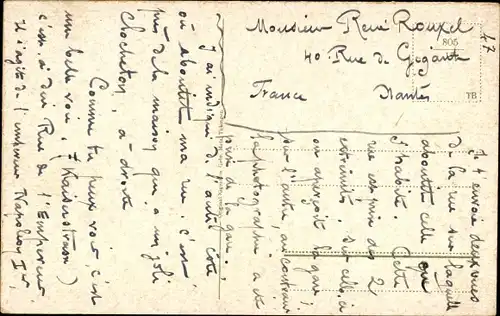 Monsieur René Rouxel
40 Rue de Gigant
Nantes
France
47
805
TB
Je t'envoie deux vues
de la rue sur laquelle
aboutit celle que
j'habite. Cette
rue est prise des 2
extrémités. Sur celle-ci
on aperçoit la gare ;
sur l'autre, au contraire
la photographie a été
prise de la gare.
J'ai indiqué de l'autre côté
où aboutit ma rue c'est
près de la maison qui a un joli
clocheton, à droite
Comme tu peux voir c'est
une belle voie, (Kaiserstrasse)
c'est à dire Rue de l'Empereur
Il s'agit de l'empereur Napoléon Ier.